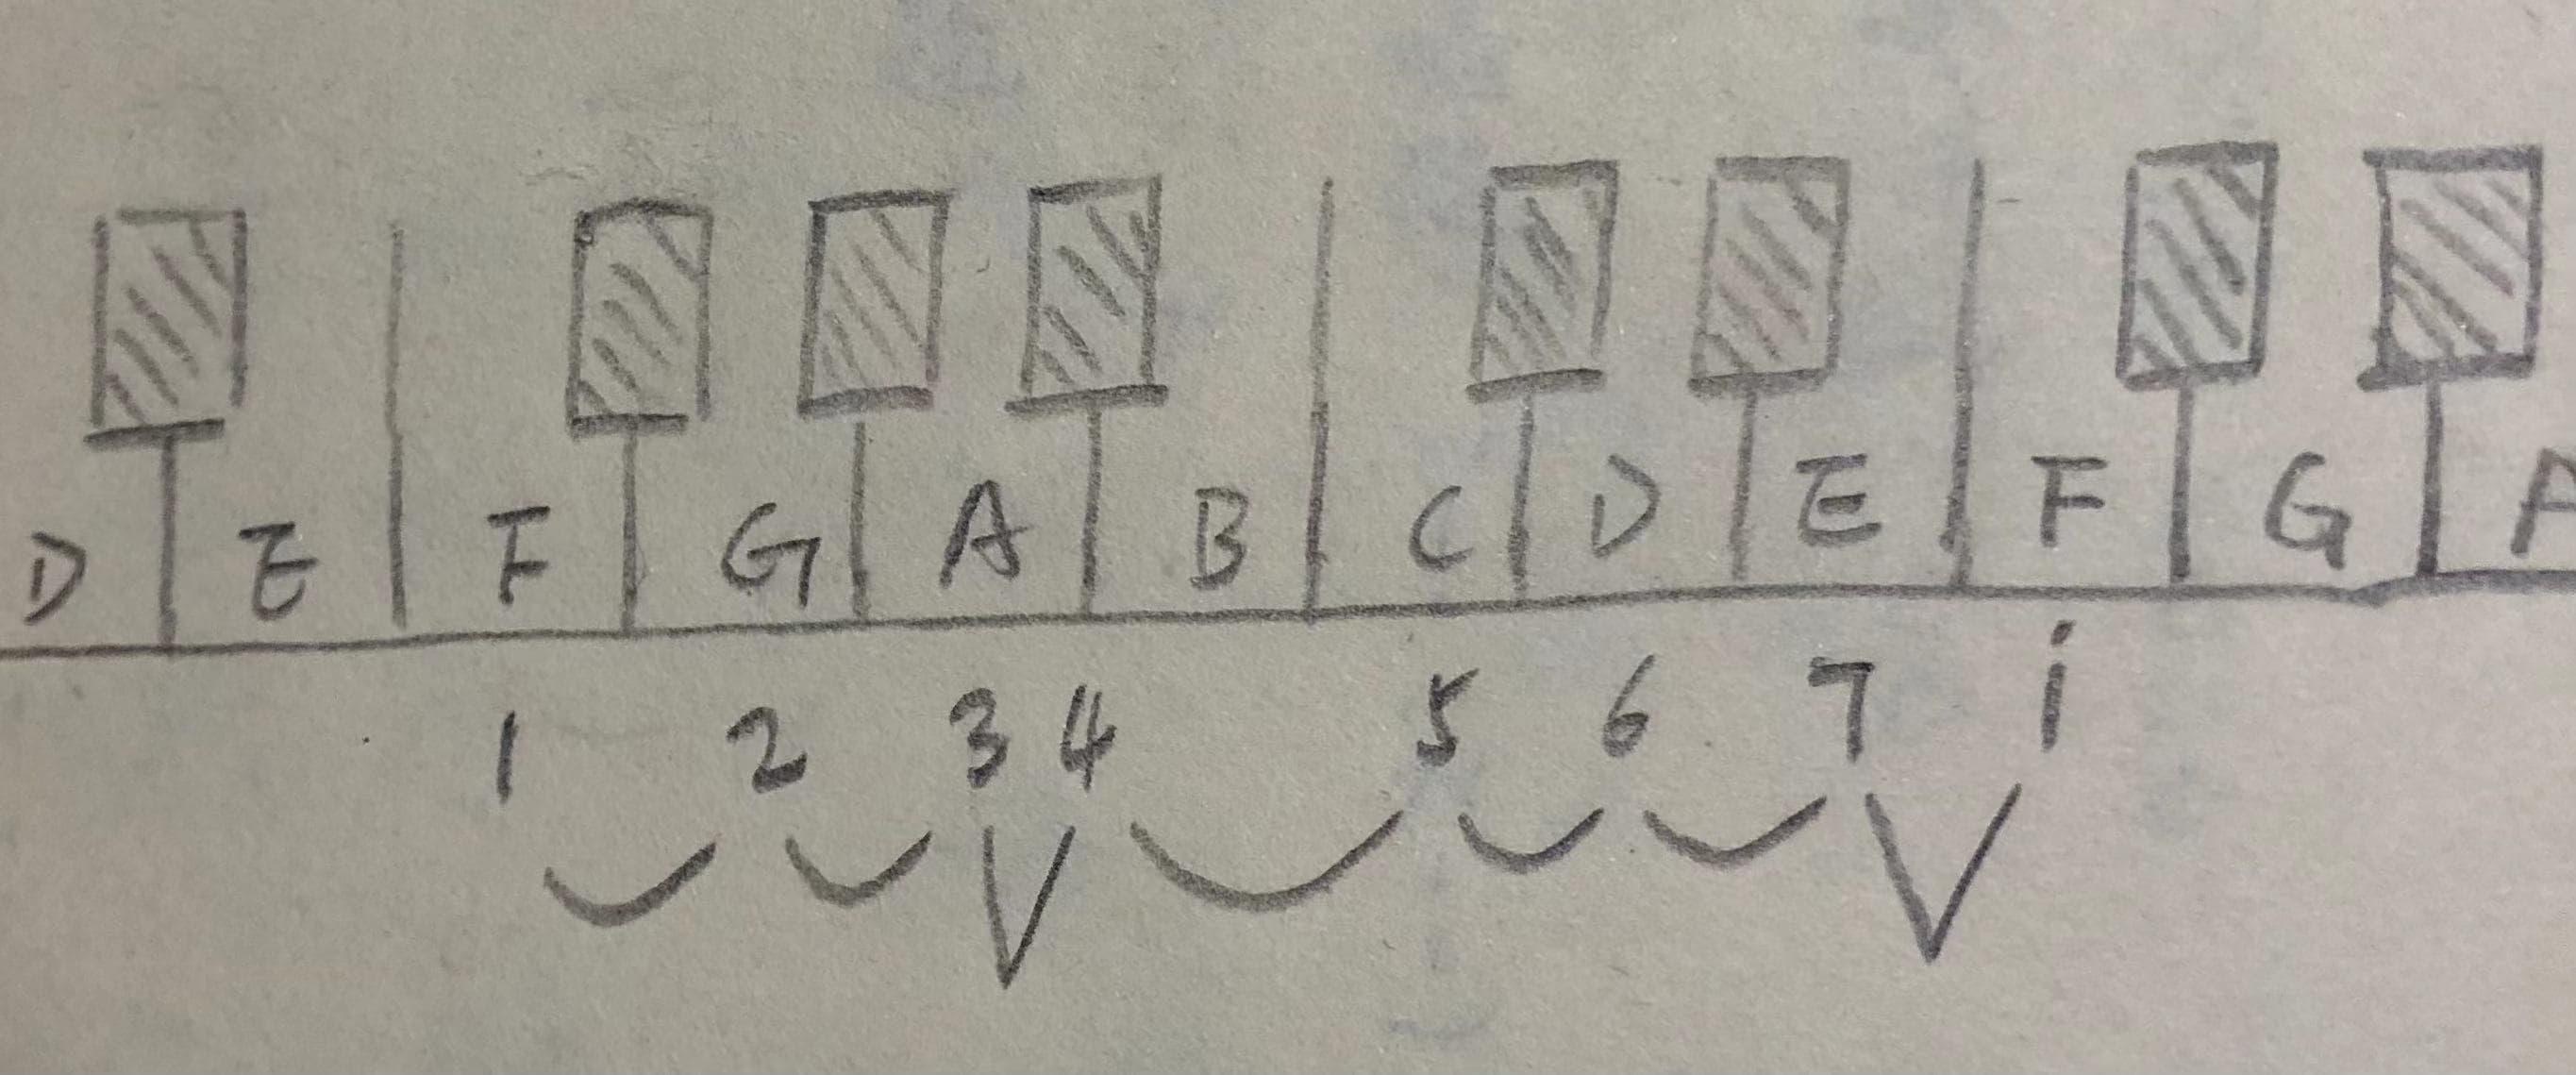 D E F G A B C D E F G A
1 2 3 4 5 6 7 i